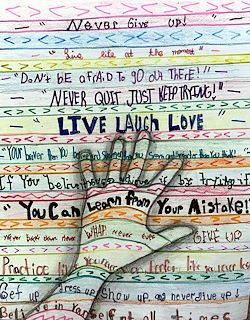 "Never Give up!"
"Live life at the moment"
"Don't bE afraid to go out tHERE!"
"NEVER QUIT JUST KEEP TRYING!"
"LIVE LAUGH LOVE"
"Your better than You believe and Stronger than you Seem and Smarter than You think!"
If You believe
"You Can Learn from Your Mistake!"
Never back down never WHAT never ever GIVE UP
Practice like
Get up Dress up Show up and never give up!
Believe in Yourself at all times